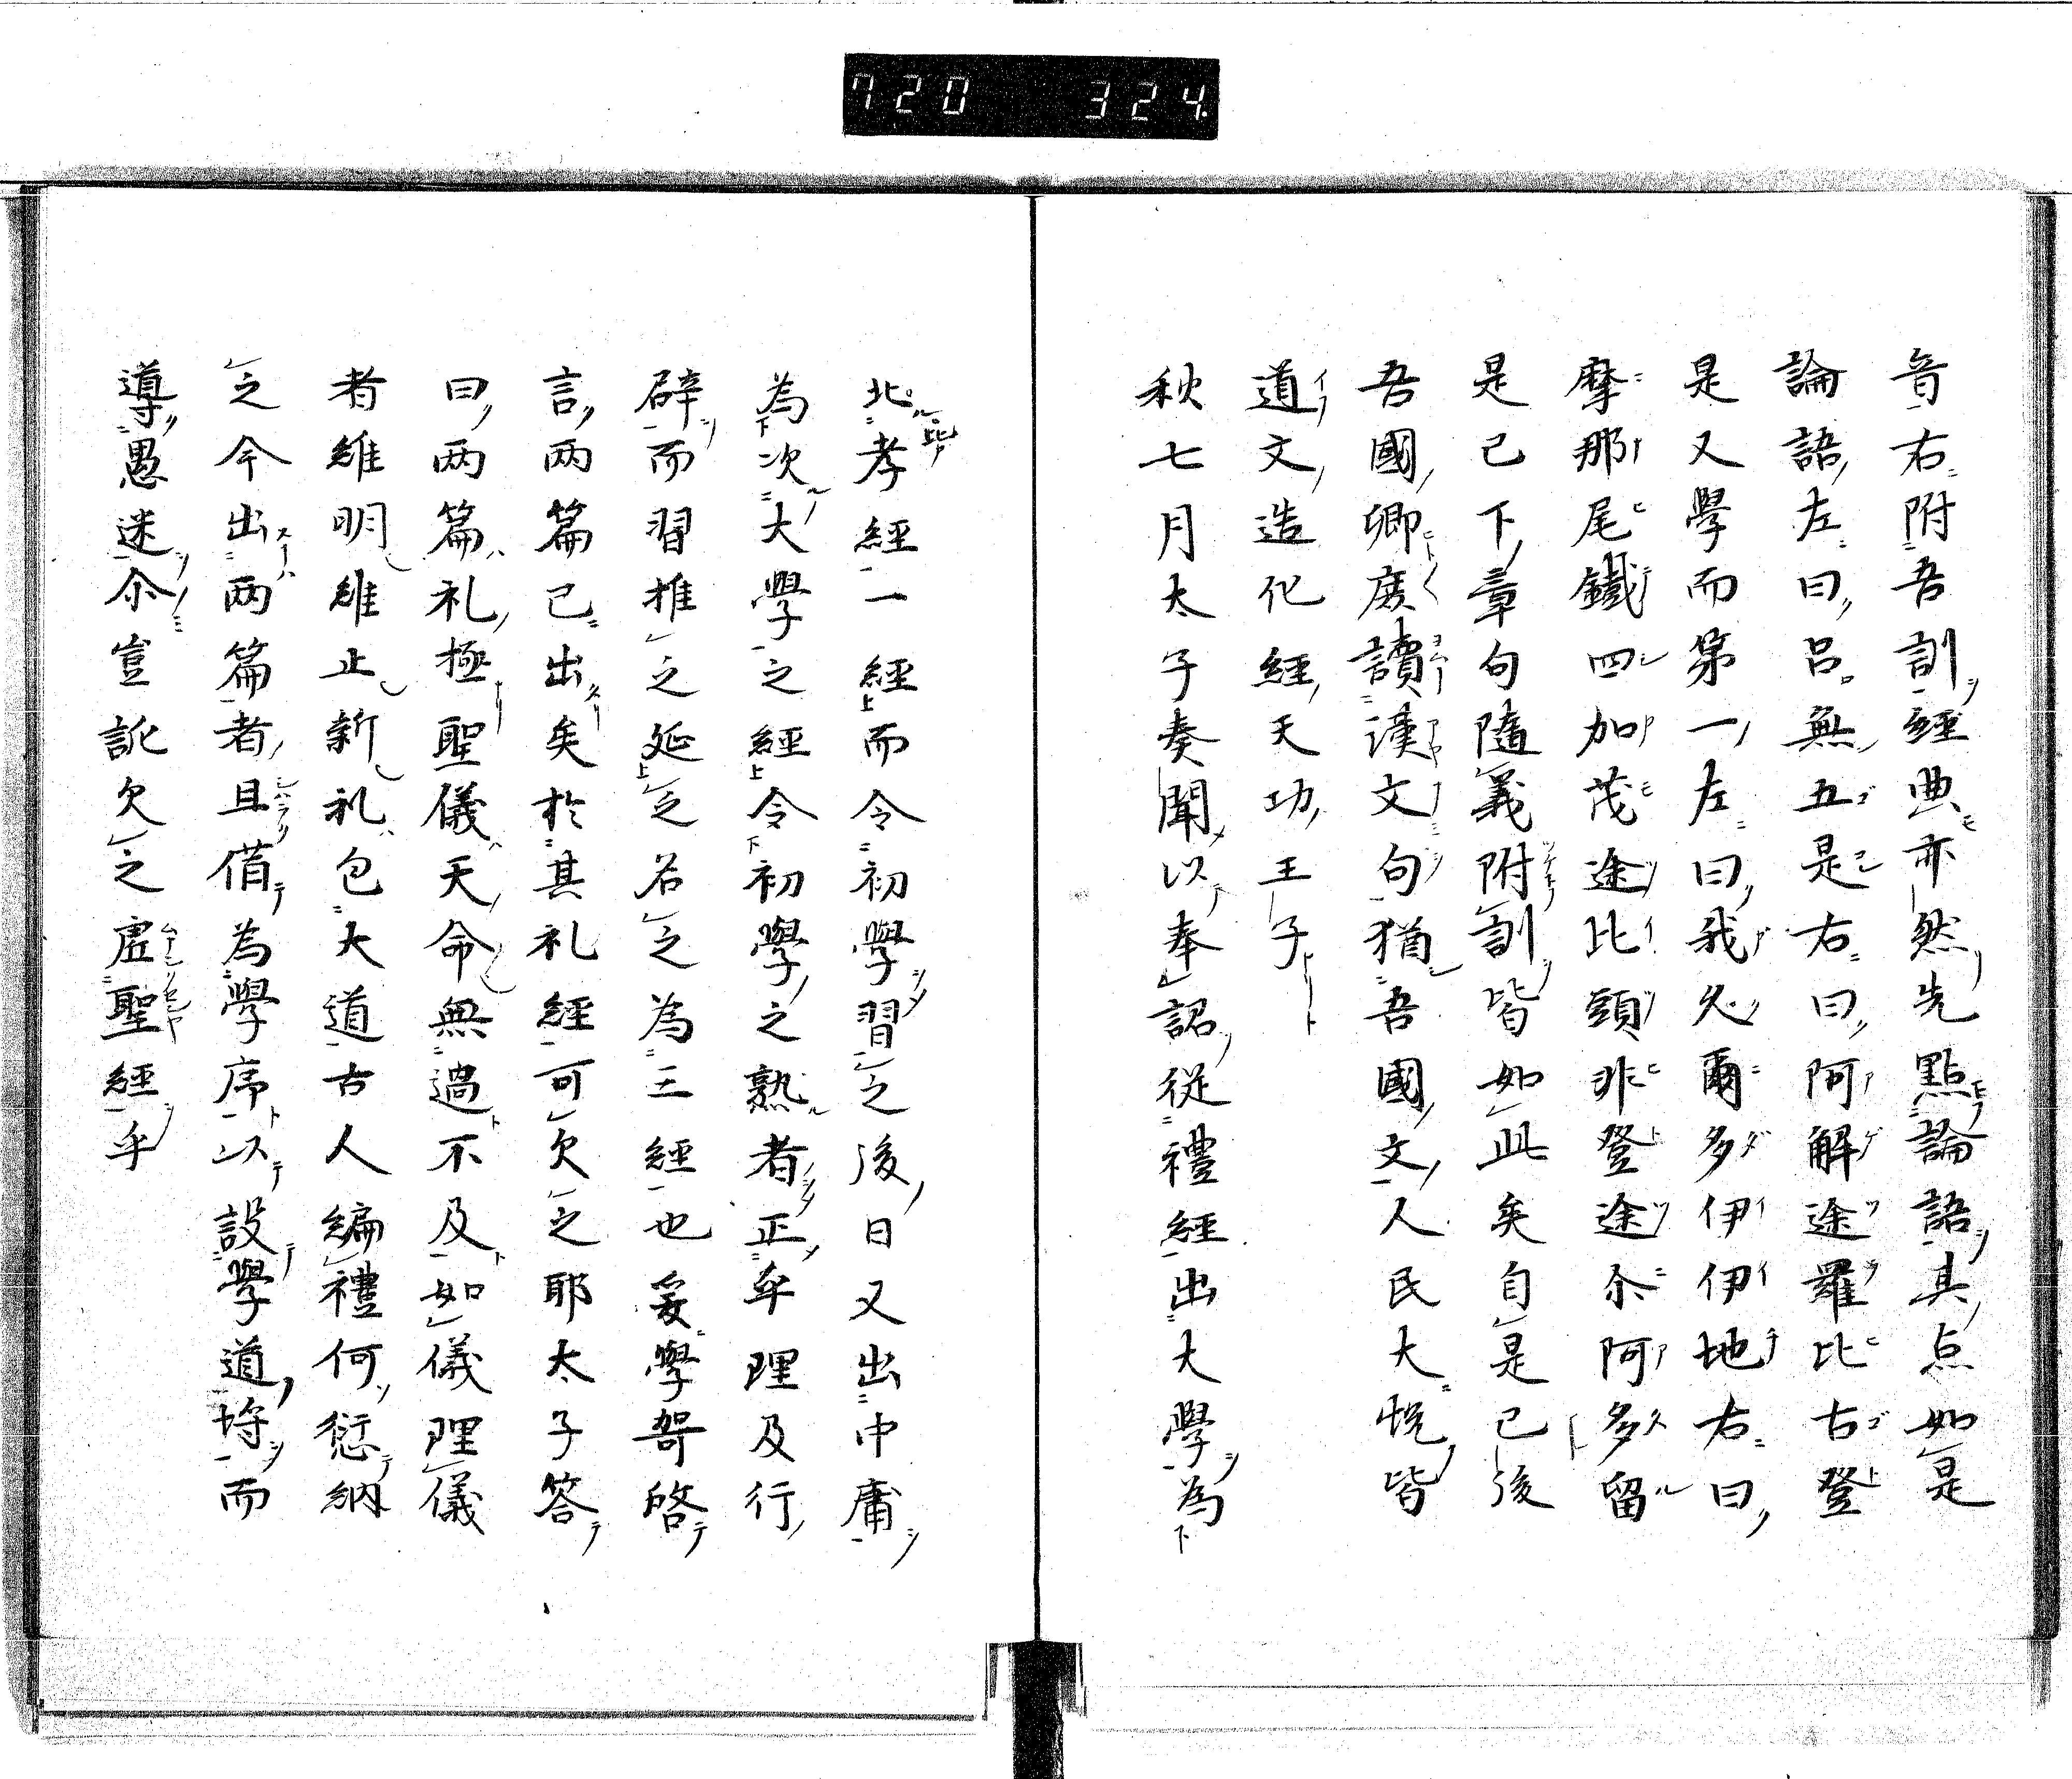 720 324
音右附吾訓經典亦然先點論語其点如是
論語左曰呂無五是右曰阿解途羅比古登
是又學而第一左曰我久爾多伊伊地右曰
摩那尾鐵四加茂途比頭非登途尒阿多留
是已下章句隨義附訓皆如此矣自是已後
吾國卿庶讀漢文句猶吾國文人民大悦皆
道文造化經天功王子
秋七月太子奏聞以奉詔從禮經出大學為
北孝經一經而令初學習之後日又出中庸
為次大學之經令初學之熟者正牟理及行
辟而習推之延之名之為三經也爰學哿啓
言兩篇已出矣於其礼經可欠之耶太子答
曰兩篇礼極聖儀天命無過不及如儀理儀
者維明維止新礼包大道古人編禮何愆納
之今出兩篇者且借為學序以設學道㙛而
導愚迷尒豈訛欠之虛聖經乎